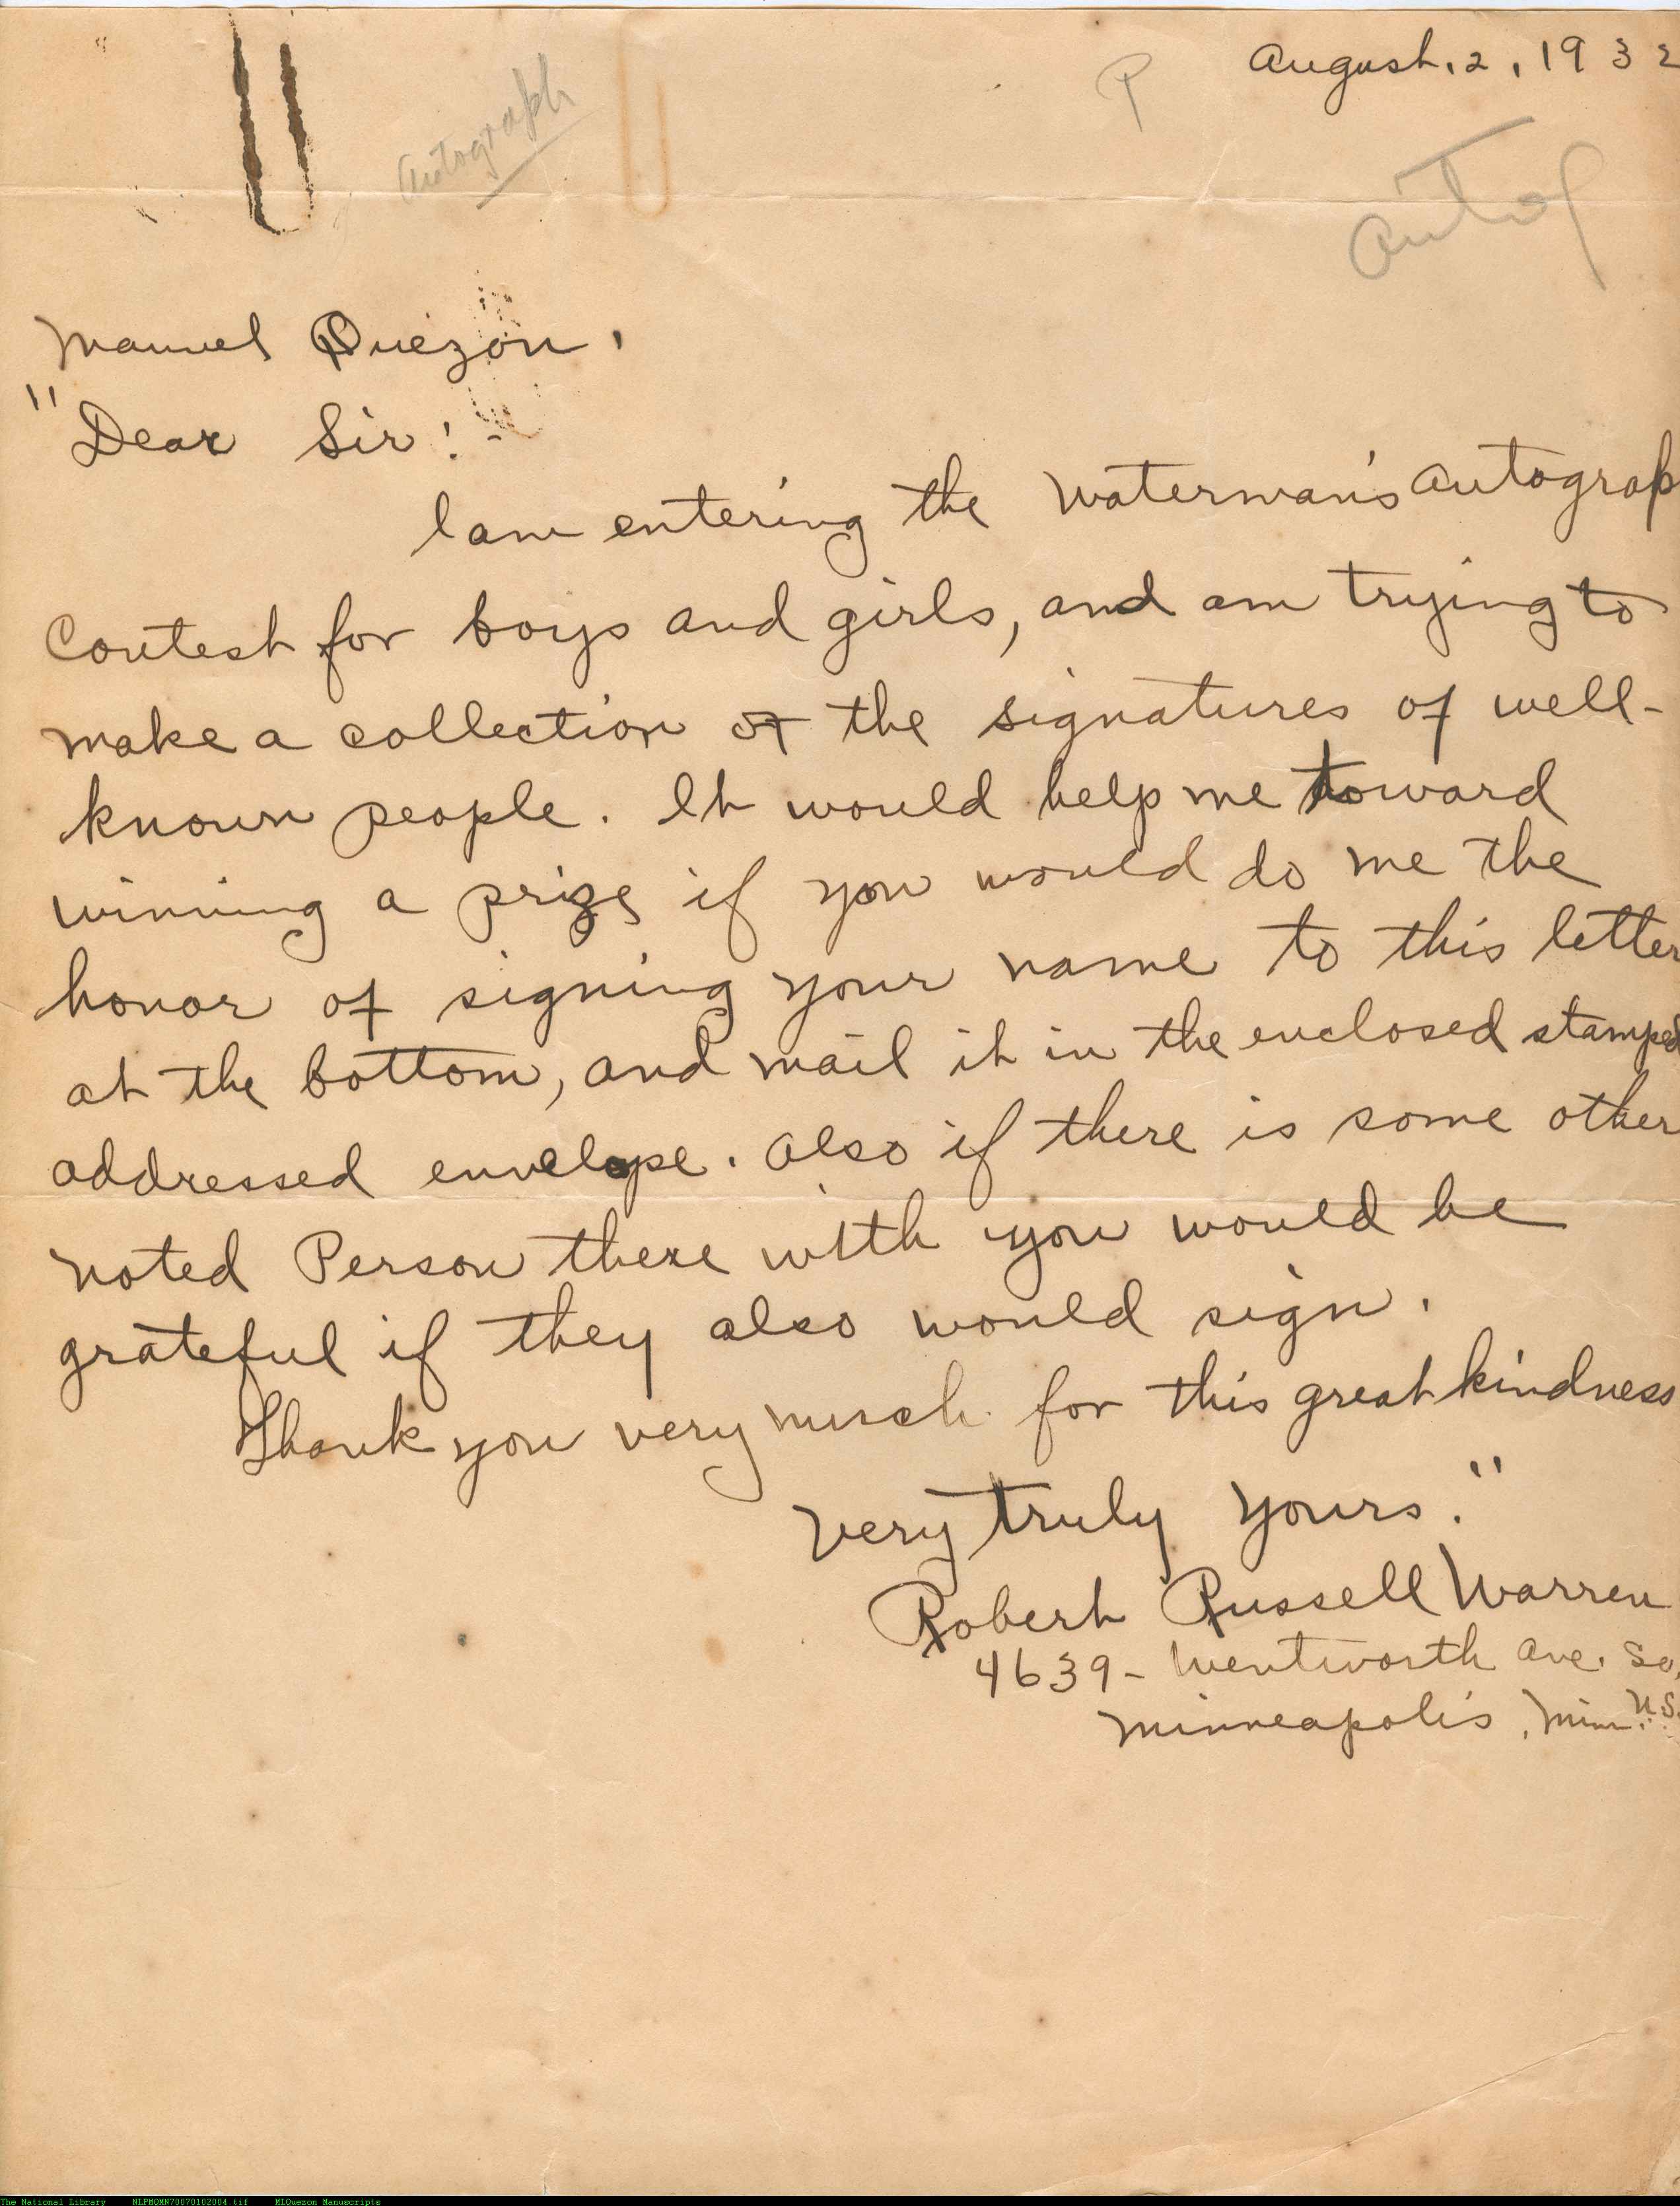 August, 2, 1932
P
Autograph
Autog
Manuel Quezon,
"Dear Sir:-
I am entering the Waterman's Autograp
Contest for boys and girls, and am trying to
make a collection of the signatures of well-
known people. It would help me toward
winning a prize if you would do me the
honor of signing your name to this letter
at the bottom, and mail it in the enclosed stamped
addressed envelope. Also if there is some other
noted Person there with you would be
grateful if they also would sign.
Thank you very much for this great kindness
Very truly yours."
Robert Russell Warren
4639 - Wentworth Ave. So,
Minneapolis, Minn. U.S.
The National Library NLPMQMN70070102004.tif MLQuezon Manuscripts